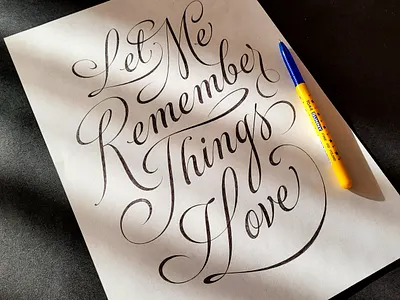 Let Me
Remember
Things
I Love